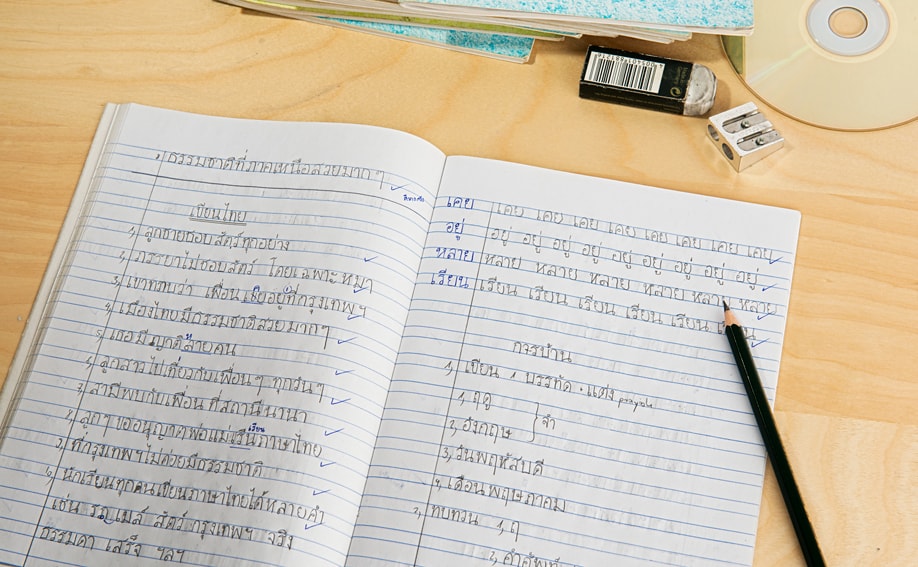 ธรรมชาติที่ภาคเหนือสวยมากๆ
เขียนไทย
1, ลูกชายชอบสัตว์ทุกอย่าง
2, ภรรยาไม่ชอบสัตว์ โดยเฉพาะหมา
3, เขาทราบว่า เพื่อน อยู่ที่กรุงเทพฯ
4, เมืองไทยมีธรรมชาติสวยมากๆ
5, เธอมีญาติ คน
6, ลูกสาวไปเที่ยวกับเพื่อนๆ ทุกวันๆ
7, สามีพบกับเพื่อน ที่สถานีนานา
เรียน
8, ลูกๆ ขออนุญาตพ่อแม่ ภาษาไทย
9, ที่กรุงเทพฯไม่ค่อยมีธรรมชาติ
10, นักเรียนทุกคนเขียนภาษาไทยได้หลายคำ
เช่น รถเมล์ สัตว์ กรุงเทพฯ จริง
ธรรมดา เสร็จ ฯลฯ
เคย เคย เคย เคย เคย เคย เคย เคย เคย
อยู่ อยู่ อยู่ อยู่ อยู่ อยู่ อยู่ อยู่ อยู่
หลาย หลาย หลาย หลาย หลาย หลาย หลาย
เรียน เรียน เรียน เรียน เรียน เรียน
การบ้าน
1, เขียน 1 บรรทัด. แต่ง
1, ฤดู
2, อังกฤษ
จำ
3, วันพฤหัสบดี
4, เดือนพฤษภาคม
2, ทบทวน 1, ฤ
2, คำศัพท์